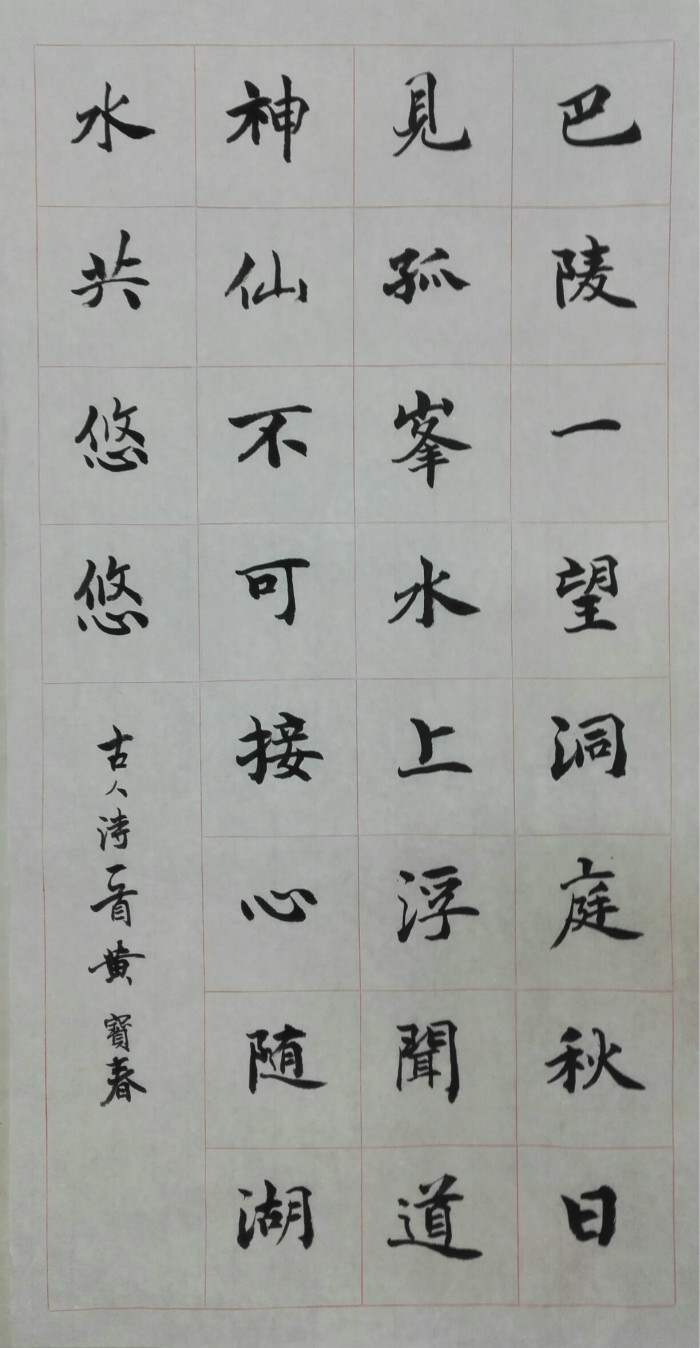 巴陵一望洞庭秋日
見孤峯水上浮聞道
神仙不可接心随湖
水共悠悠
古人詩一首黄寶春